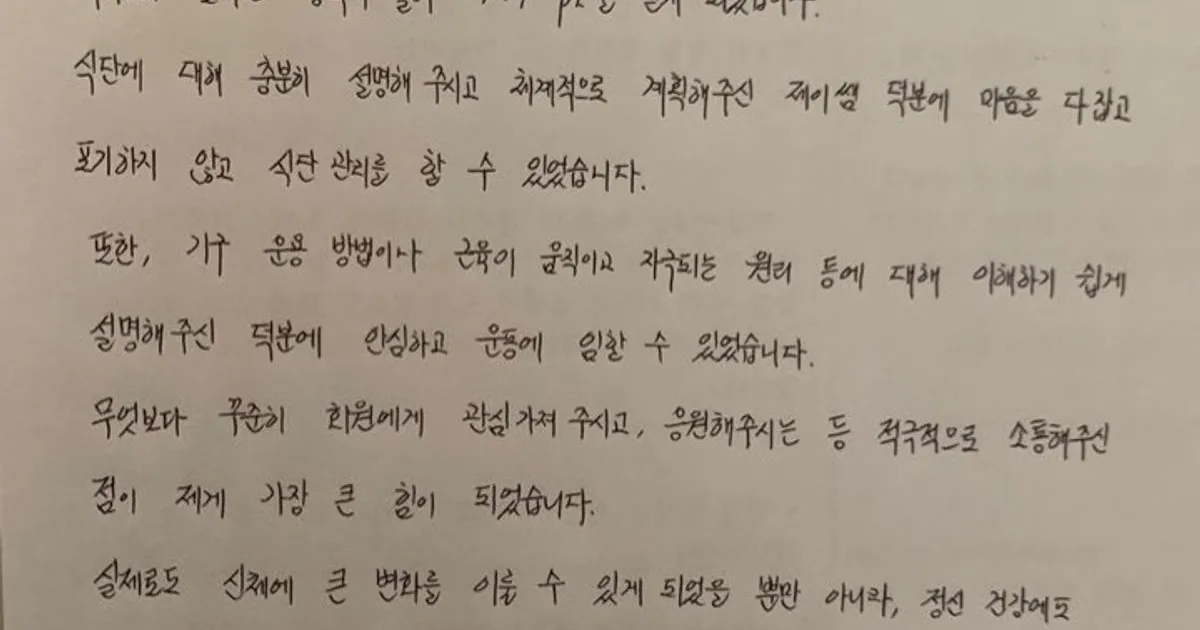 받게 되었습니다.
식단에 대해 충분히 설명해 주시고 체계적으로 계획해주신 제이쌤 덕분에 마음을 다잡고
포기하지 않고 식단 관리를 할 수 있었습니다.
또한, 기구 운용 방법이나 근육이 움직이고 자극되는 원리 등에 대해 이해하기 쉽게
설명해주신 덕분에 안심하고 운동에 임할 수 있었습니다.
무엇보다 꾸준히 회원에게 관심 가져 주시고, 응원해주시는 등 적극적으로 소통해주신
점이 제게 가장 큰 힘이 되었습니다.
실제로도 신체에 큰 변화를 이룰 수 있게 되었을 뿐만 아니라, 정신 건강에도